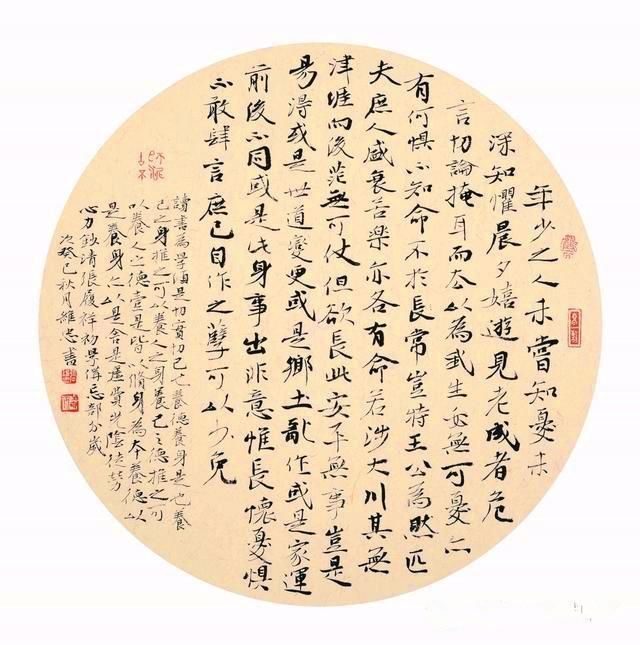 年少之人未嘗知憂未
深知懼晨夕嬉遊見老成者危
言切論掩耳而去以為我生必無可憂亦
有何懼不知命不於長常豈特王公為然匹
夫庶人盛衰苦樂亦各有命若涉大川其無
津涯向後茫無可仗但欲長此安平無事豈是
易得或是世道變更或是鄉土亂作或是家運
前後不同或是此身事出非意惟長懷憂懼
不敢肆言庶已自作之孽可以少免
讀書為學須是切實切己亡養德養身是也養
己之身推之可以養人之身養己之德推之可
以養人之德壹是皆以脩身為本養德以
是養身亦以是舍是虛費光陰徒勞
心力鈔清張履祥初學備忘部分歲
次癸巳秋月維忠書